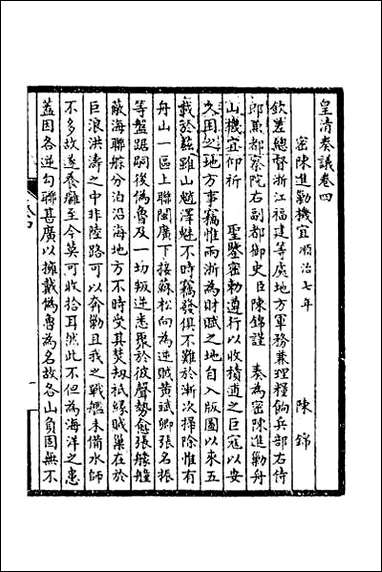 皇清奏議卷四
密陳進勦機宜順治七年 陳錦
欽差總督浙江福建等處地方軍務兼理糧餉兵部右侍
郎兼都察院右副都御史臣陳錦謹 奏為密陳進勦舟
山機宜仰祈 聖鑒密勅遵行以收積逋之巨寇以安
久困之地方事竊惟兩浙為財賦之地自入版圖以來五
載於茲雖山魈澤魅不時竊發俱不難於漸次掃除惟有
舟山一區上聯閩廣下接蘇松向為逆賊黃斌卿張名振
等盤踞嗣後偽魯及一切叛逆悉聚於彼聲勢愈張艅艎
蔽海聯艅分泊沿海地方不時受其焚刼祗緣賊巢在於
巨浪洪濤之中非陸路可以奔勦且我之戰艦未備水師
不多故遂養癰至今莫可收拾耳然此不但為海洋之患
蓋因各逆勾聯甚廣以擁戴偽魯為名故各山負固無不